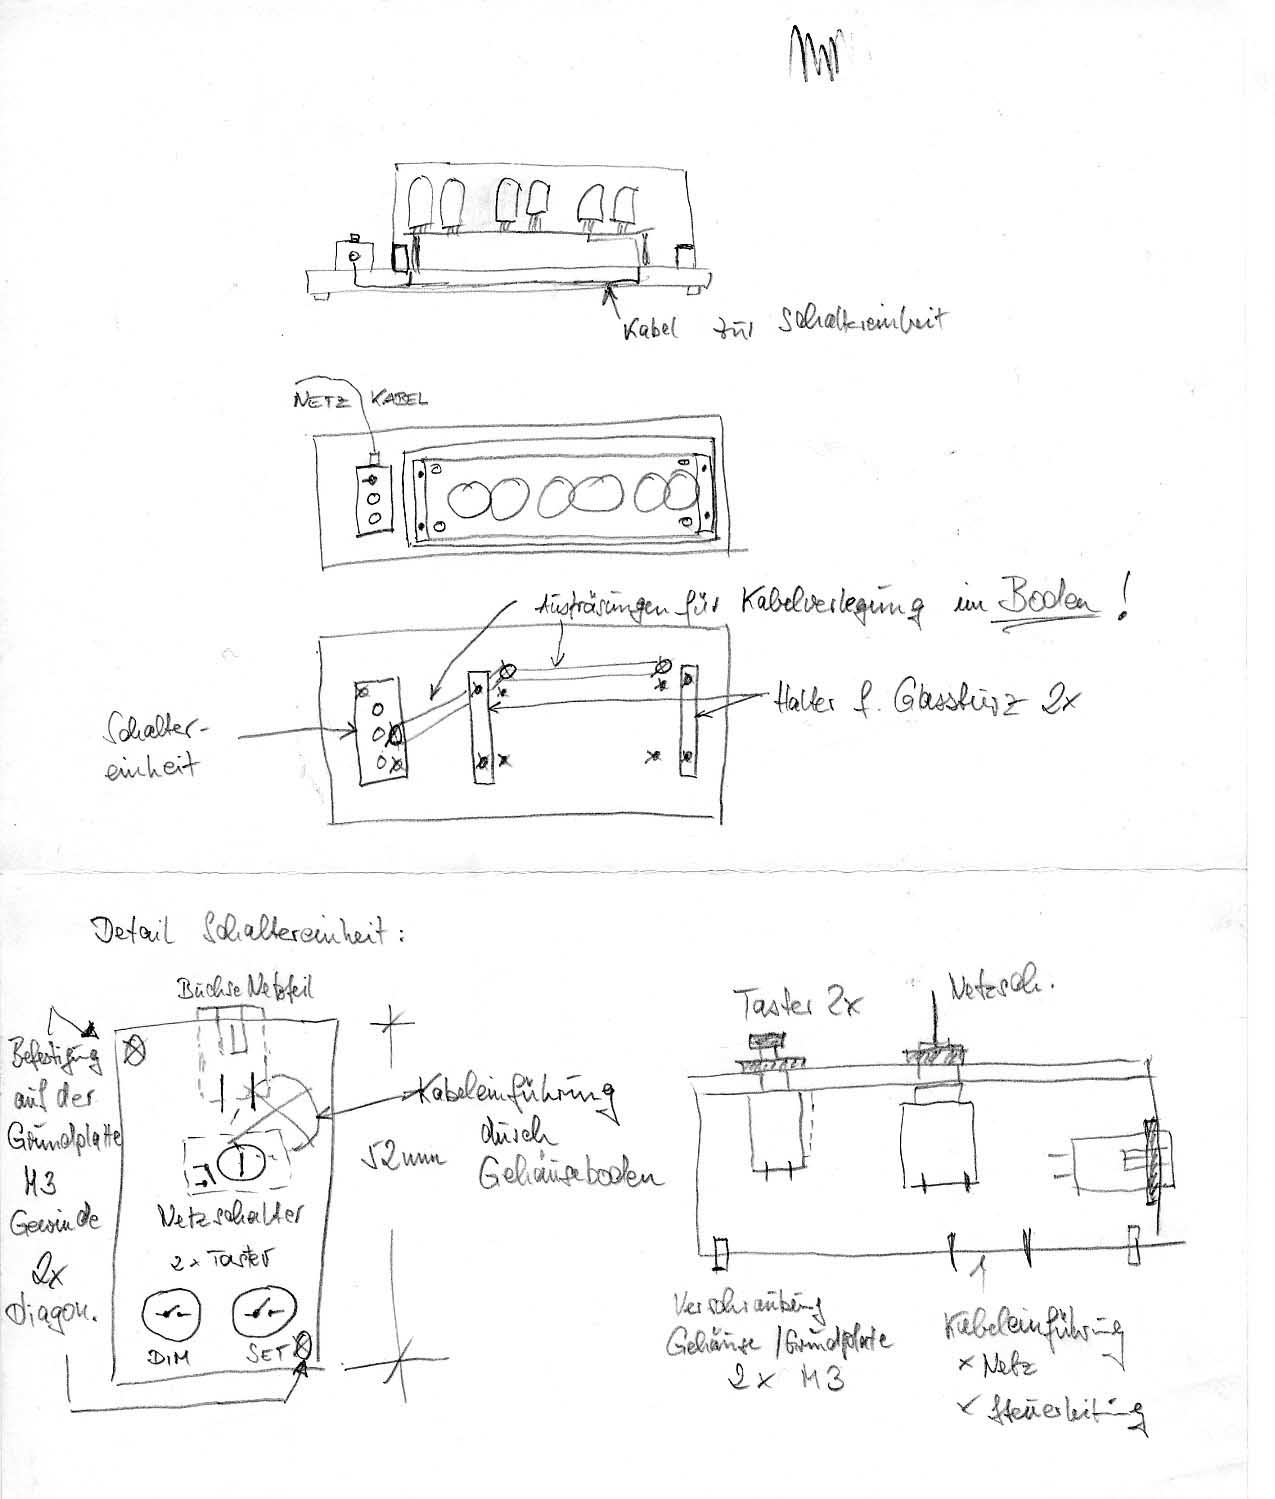 Kabel zur Schaltereinheit
NETZ KABEL
Ausfräsungen für Kabelverlegung im Boden!
Halter f. Glassturz 2x
Schalter-
einheit
Detail Schaltereinheit:
Buchse Netzteil
Befestigung
auf der
Grundplatte
M3
Gewinde
2x
Diagon.
Kabeleinführung
durch
Gehäuseboden
52mm
Netzschalter
2x Taster
DIM
SET
Taster 2x
Netzsch.
Verschraubung
Gehäuse/Grundplatte
2x M3
Kabeleinführung
x Netz
x Steuerleitung